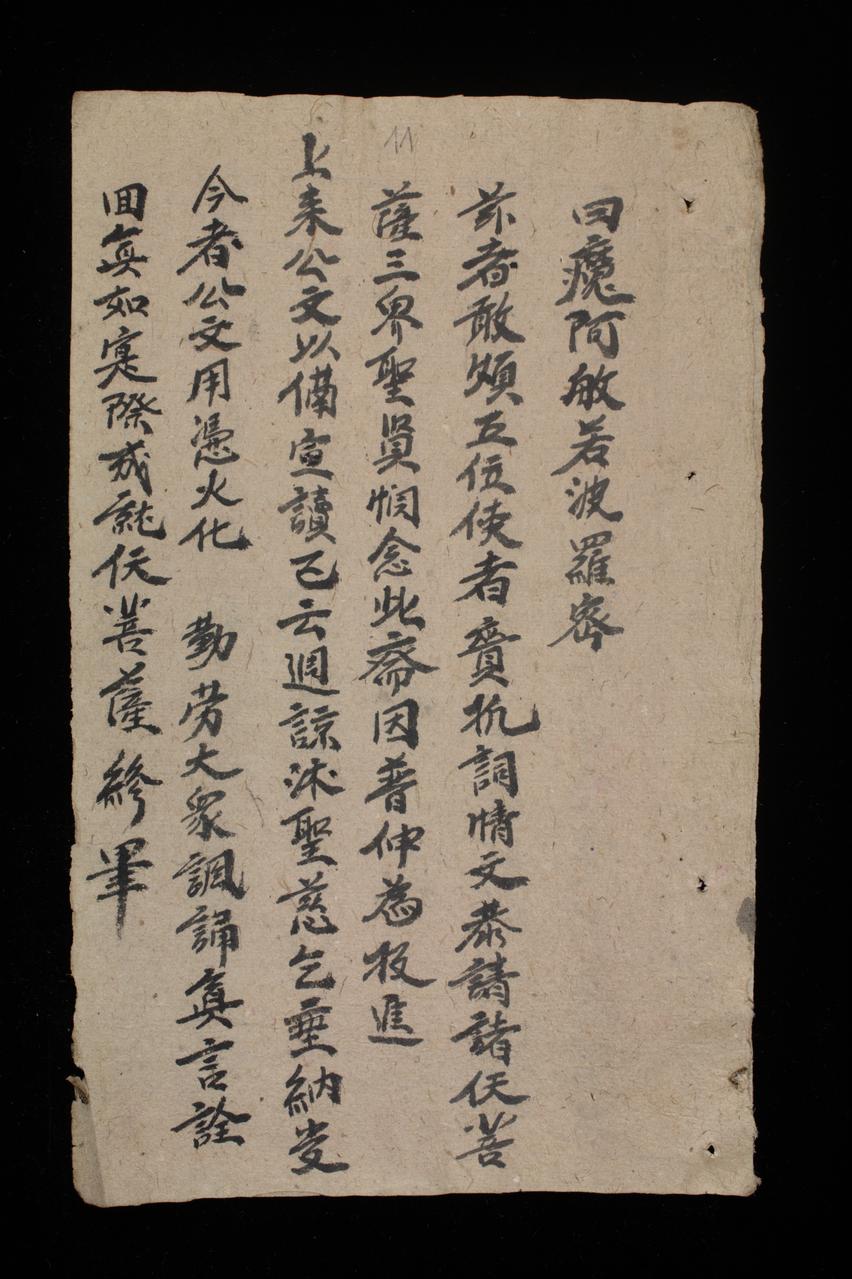 曰魔阿般若波羅密
茲者敢煩五位使者賫捧詞情文恭請諸仸菩
薩三界聖賢憫念此齋因普伸為投進
上来公文以俻宣讀已云週諒沐聖慈乞垂納受
今者公文用憑火化 勤劳大衆諷誦真言詮
回真如寔際成就仸菩薩 畢
11